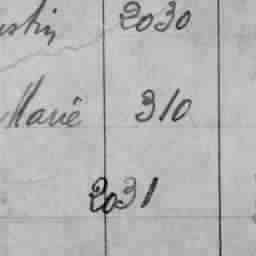 2030
Marie 310
2031